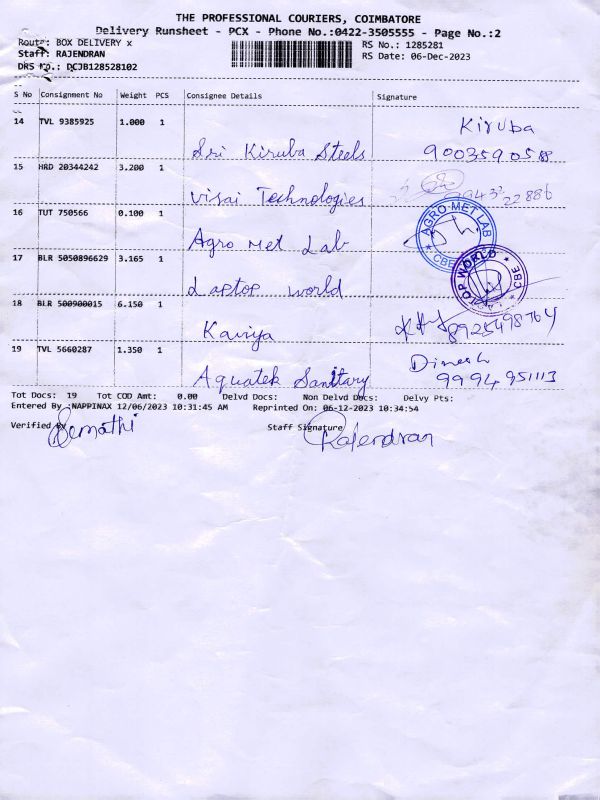 THE PROFESSIONAL COURIERS, COIMBATORE
Delivery Runsheet - PCX - Phone No.:0422-3505555 - Page No.:2
Route: BOX DELIVERY x RS No.: 1285281
Staff: RAJENDRAN RS Date: 06-Dec-2023
DRS No.: DCJB128528102
S No Consignment No Weight PCS Consignee Details Signature
14 TVL 9385925 1.000 1 Kiruba
Sri Kiruba Steels
15 HRD 20344242 3.200 1
Visai Technologies
16 TUT 750566 0.100 1
Agro Met Lab AGRO MET LAB CBE
17 BLR 5050896629 3.165 1
Laptop World LAPTOP WORLD CBE
18 BLR 500900015 6.150 1
Kaviya 8925498764
19 TVL 5660287 1.350 1 Dinesh
Aquatek Sanitary 9994951113
Tot Docs: 19 Tot COD Amt: 0.00 Delvd Docs: Non Delvd Docs: Delvy Pts:
Entered By :NAPPINAX 12/06/2023 10:31:45 AM Reprinted On: 06-12-2023 10:34:54
Verified By Staff Signature
Rajendran